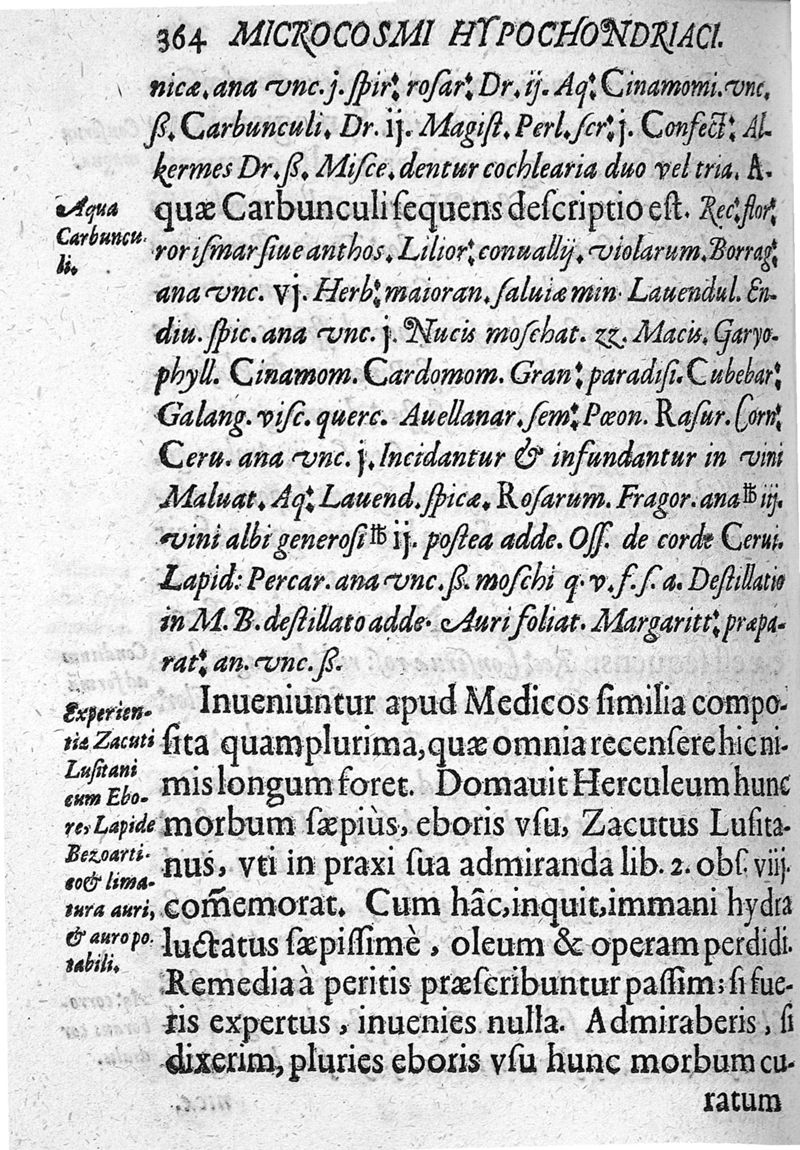 364 MICROCOSMI HYPOCHONDRIACI.
nicæ. ana vnc. j. ſpir: roſar: Dr. ij. Aq: Cinamomi. vnc.
ß. Carbunculi. Dr. ij. Magiſt. Perl. ſcr: j. Confect: Al-
kermes Dr. ß. Miſce. dentur cochlearia duo vel tria. A-
quæ Carbunculi ſequens deſcriptio eſt. Rec: flor:
roriſmar ſiue anthos. Lilior: conuallij. violarum. Borrag:
ana vnc. vj. Herb: maioran. ſaluiæ min. Lauendul. En-
diu. ſpic. ana vnc. j. Nucis moſchat. zz. Macis. Garyo-
phyll. Cinamom. Cardomom. Gran: paradiſi. Cubebar:
Galang. viſc. querc. Auellanar. ſem: Pœon. Raſur. Corn:
Ceru. ana vnc. j. Incidantur & infundantur in vini
Maluat. Aq: Lauend. ſpicæ. Roſarum. Fragor. ana ℔ iij.
vini albi generoſi ℔ ij. poſtea adde. Oſſ. de corde Cerui.
Lapid: Percar. ana vnc. ß. moſchi q. v. f. ſ. a. Deſtillatio
in M. B. deſtillato adde. Auri foliat. Margaritt: præpa-
rat: an. vnc. ß.
Aqua
Carbuncu-
li.
Inueniuntur apud Medicos ſimilia compo-
ſita quamplurima, quæ omnia recenſere hic ni-
mis longum foret. Domauit Herculeum hunc
morbum ſæpiùs, eboris vſu, Zacutus Luſita-
nus, vti in praxi ſua admiranda lib. 2. obſ. viij.
com̃emorat. Cum hâc, inquit, immani hydra
luctatus ſæpiſſimè, oleum & operam perdidi.
Remedia à peritis præſcribuntur paſſim; ſi fue-
ris expertus, inuenies nulla. Admiraberis, ſi
dixerim, pluries eboris vſu hunc morbum cu-
ratum
Experien-
tia Zacuti
Luſitani
cum Ebo-
re, Lapide
Bezoarti-
co & lima-
tura auri,
& auro po-
tabili.